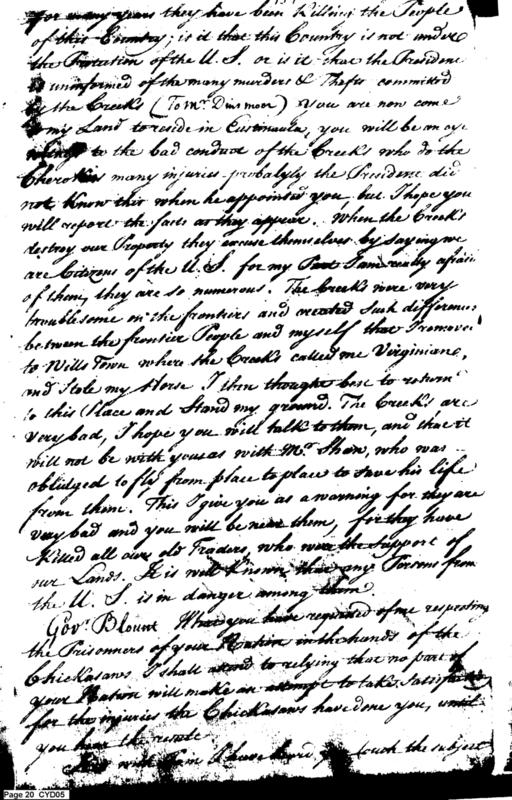 for many years they have been Killing the People
of this Country; is it that this Country is not under
the Protection of the U. S. or is it that the President
is uninformed of the many murders & Thefts committed
by the Creeks (To Mr. Dinsmoor) You are now come
to my Land to reside in Eustinaula, you will be an eye
witness to the bad conduct of the Creeks who do the
Cherokees many injuries probalyly the President did
not know this when he appointed you, but I hope you
will report the facts as they appear. When the Creeks
destroy our Property they excuse themselves by saying we
are Citizens of the U. S. for my Part I am really afraid
of them, they are so numerous. The Creeks were very
troublesome on the frontiers and created such differences
between the frontier People and myself that I removed
to Wills Town where the Creeks called me Virginian,
and Stole my Horse I then thought best to return
to this Place and Stand my ground. The Creeks are
very bad, I hope you will talk to them, and that it
will not be with you as with Mr. Shaw, who was
obliged to fly from place to place to save his life
from them. This I give you as a warning for they are
very bad and you will be near them, for they have
Killed all our old Traders, who were the support of
our Lands. It is well known that any Persons from
the U. S. is in danger among them
Govr. Blount What you have required of me respecting
the Prisonners of your Nation in the hands of the
Chickasaws I shall attend to relying that no part of
your Nation will make an attempt to take Satisfaction
for the injuries the Chickasaws have done you, until
you hear the result
I have heard you touch the subject
Page 20 CYD05